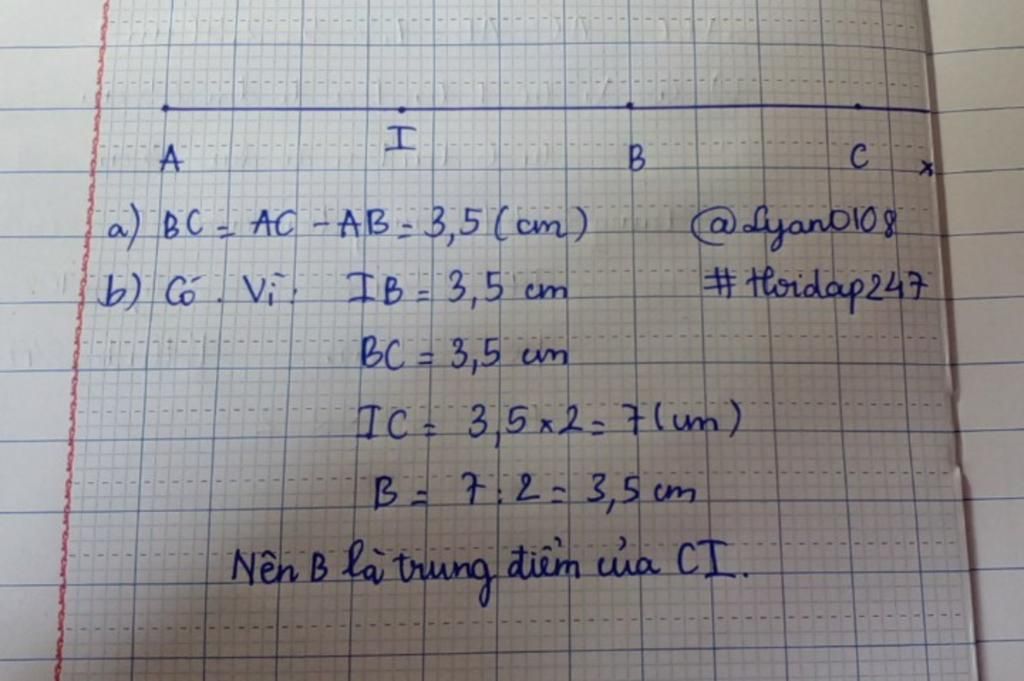 A I B C x
a) BC = AC - AB = 3,5 (cm) @Lyan0108
b) Có. Vì: IB = 3,5 cm #Hoidap247
BC = 3,5 cm
IC = 3,5 x 2 = 7 (cm)
B = 7 : 2 = 3,5 cm
Nên B là trung điểm của CI.